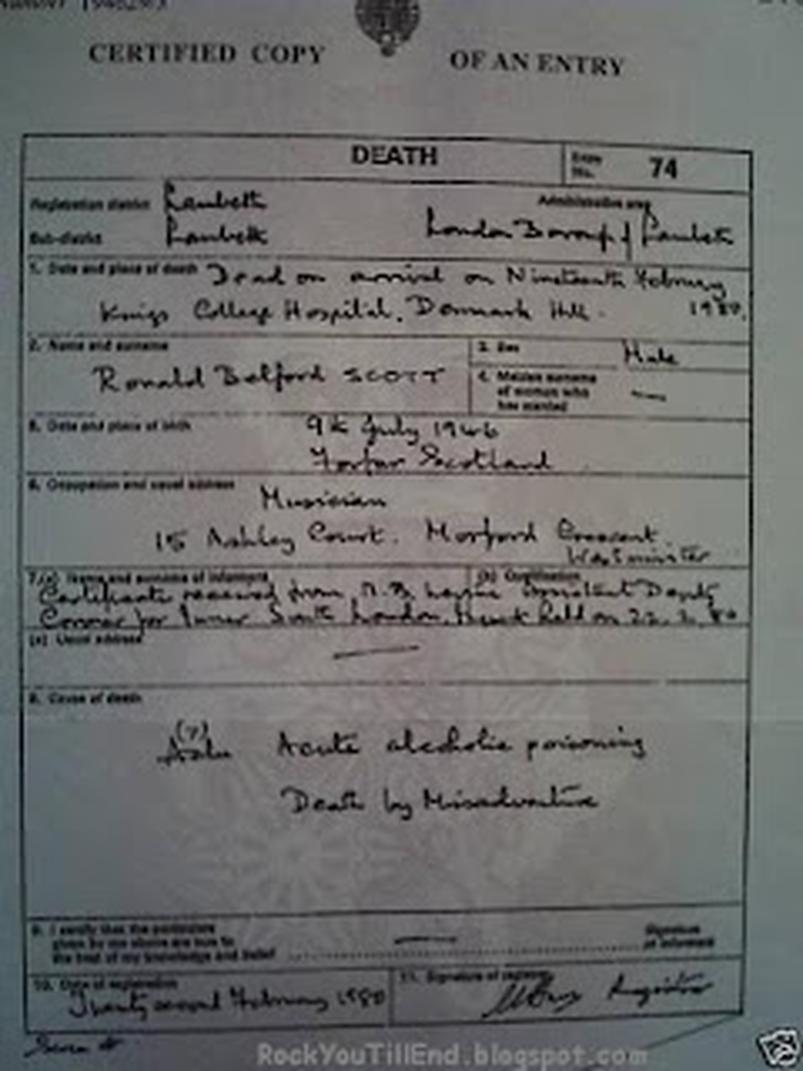 CERTIFIED COPY OF AN ENTRY
DEATH
Entry No. 74
Registration district Lambeth
Administrative area
Sub-district Lambeth
London Borough of Lambeth
1. Date and place of death Dead on arrival on Nineteenth February
Kings College Hospital, Denmark Hill. 1980.
2. Name and surname
Ronald Belford SCOTT
3. Sex Male
4. Maiden surname
of woman who
has married —
5. Date and place of birth 9th July 1946
Forfar Scotland
6. Occupation and usual address
Musician
15 Ashley Court. Morford Crescent
Westminster
7.(a) Name and surname of informant
(b) Qualification
Certificate received from Assistant Deputy
Coroner for Inner South London. Inquest held on 22. 2. 80
(c) Usual address
—
8. Cause of death
(7)
Acute alcoholic poisoning
Death by Misadventure
9. I certify that the particulars
given by me above are true to
the best of my knowledge and belief — Signature
of informant
10. Date of registration
Twenty second February 1980
11. Signature of registrar
Registrar
RockYouTillEnd.blogspot.com